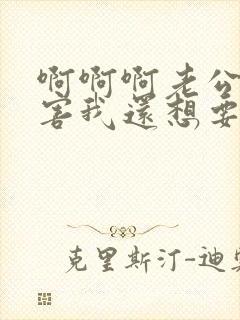 啊啊啊老公
害我還想要
克里斯汀-迪